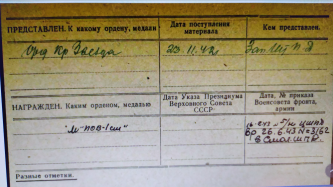 ПРЕДСТАВЛЕН. К какому ордену, медали
Дата поступления материала
Кем представлен.
Орд Кр Звезда
23.11.42
НАГРАЖДЕН. Каким орденом, медалью
Дата Указа Президиума Верховного Совета СССР
Дата, № приказа Военсовета фронта, армии
26.6.43 N=3/62
Разные отметки.